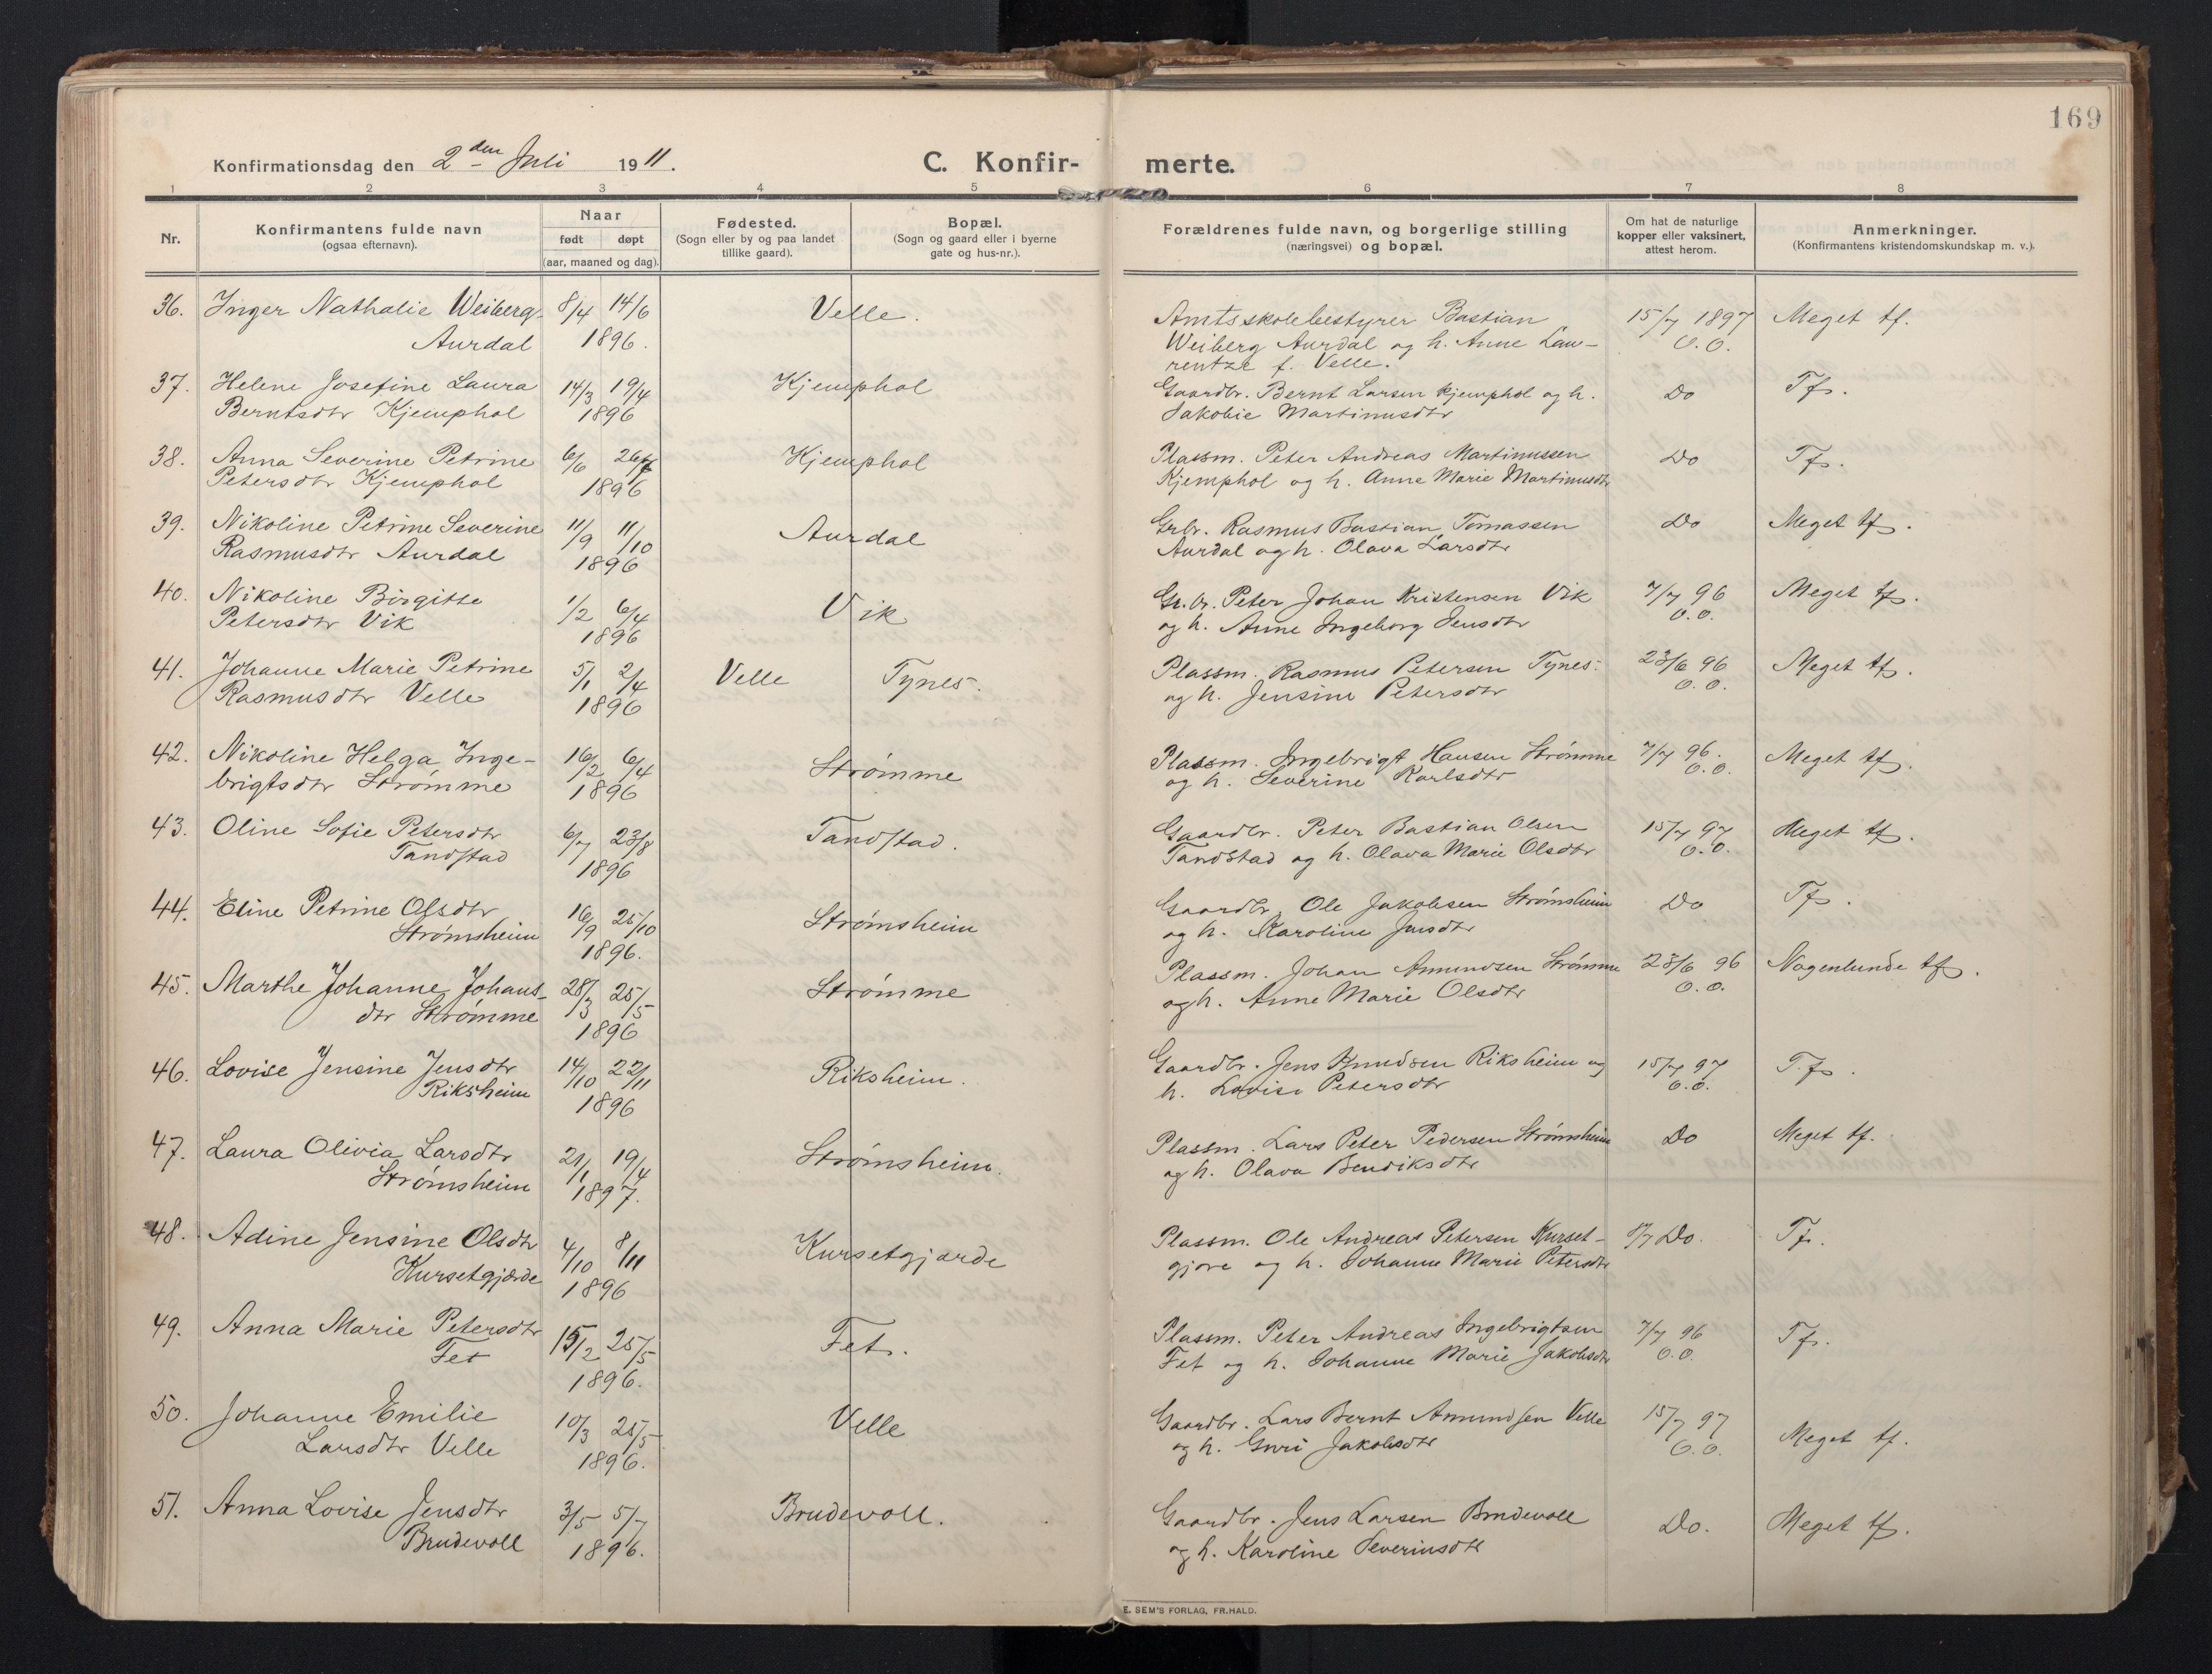 169
Konfirmationsdag den 2den Juli 1911.
C. Konfir-
merte.
1 2 3 4 5 6 7 8
Nr.
Konfirmantens fulde navn
(ogsaa efternavn).
Naar
født døpt
(aar, maaned og dag).
Fødested.
(Sogn eller by og paa landet
tillike gaard).
Bopæl.
(Sogn og gaard eller i byerne
gate og hus-nr.).
Forældrenes fulde navn, og borgerlige stilling
(næringsvei) og bopæl.
Om hat de naturlige
kopper eller vaksinert,
attest herom.
Anmerkninger.
(Konfirmantens kristendomskundskap m. v.).
36. Inger Nathalie Weiberg- 8/4 14/6 Velle. Amtsskolebestyrer Bastian 15/7 1897 Meget tf.
Aurdal 1896. Weiberg Aurdal og h. Anne Lau- O.O.
rentze f. Velle.
37. Helene Josefine Laura 14/3 19/4 Kjemphol Gaardbr. Bernt Larsen Kjemphol og h. Do Tf.
Berntsdtr Kjemphol 1896 Jakobie Martinusdtr
38. Anna Severine Petrine 6/6 26/7 Kjemphol Plassm. Peter Andreas Martinussen Do Tf.
Petersdtr Kjemphol 1896 Kjemphol og h. Anne Marie Martinusdtr
39. Nikoline Petrine Severine 11/9 11/10 Aurdal Grbr. Rasmus Bastian Tomassen Do Meget tf.
Rasmusdtr Aurdal 1896 Aurdal og h. Olava Larsdtr
40. Nikoline Birgitte 1/2 6/4 Vik Gr.br. Peter Johan Kristensen Vik 7/7 96 Meget tf.
Petersdtr Vik 1896 og h. Anne Ingeborg Jensdtr O.O.
41. Johanne Marie Petrine 5/1 2/4 Velle Tynes. Plassm. Rasmus Petersen Tynes 23/6 96 Meget tf.
Rasmusdtr Velle 1896 og h. Jensine Petersdtr O.O.
42. Nikoline Helga Inge- 16/2 6/4 Strømme Plassm. Ingebrigt Hansen Strømme 7/7 96. Meget tf.
brigtsdtr Strømme 1896 og h. Severine Karlsdtr O.O.
43. Oline Sofie Petersdtr 6/7 23/8 Tandstad. Gaardbr. Peter Bastian Olsen 15/7 97 Meget tf.
Tandstad 1896 Tandstad og h. Olava Marie Olsdtr O.O.
44. Eline Petrine Olsdtr 16/9 25/10 Strømsheim Gaardbr. Ole Jakobsen Strømsheim Do Tf.
Strømsheim 1896. og h. Karoline Jensdtr
45. Marthe Johanne Johans- 28/3 25/5 Strømme Plassm. Johan Amundsen Strømme 23/6 96 Nogenlunde tf.
dtr Strømme 1896 og h. Anne Marie Olsdtr O.O.
46. Lovise Jensine Jensdtr 14/10 22/11 Riksheim. Gaardbr. Jens Knudsen Riksheim og 15/7 97 T.f.
Riksheim 1896 h. Lovise Petersdtr O.O.
47. Laura Olivia Larsdtr 21/1 19/4 Strømsheim. Plassm. Lars Peter Pedersen Strømsheim Do Meget tf.
Strømsheim 1897. og h. Olava Bendiksdtr
48. Adine Jensine Olsdtr 4/10 8/11 Kursetgjærde Plassm. Ole Andreas Petersen Kurset- 8/7 Do. Tf.
Kursetgjærde 1896 gjære og h. Johanne Marie Petersdtr
49. Anna Marie Petersdtr 15/2 25/5 Fet. Plassm. Peter Andreas Ingebrigtsen 7/7 96 Tf.
Fet 1896. Fet og h. Johanne Marie Jakobsdtr O.O.
50. Johanne Emilie 10/3 25/5 Velle Gaardbr. Lars Bernt Amundsen Velle 15/7 97 Meget tf.
Larsdtr Velle 1896. og h. Guri Jakobsdtr O.O.
51. Anna Lovise Jensdtr 3/5 5/7 Brudevoll. Gaardbr. Jens Larsen Brudevoll Do. Meget tf.
Brudevoll 1896. og h. Karoline Severinsdtr
E. SEM'S FORLAG, FR.HALD.